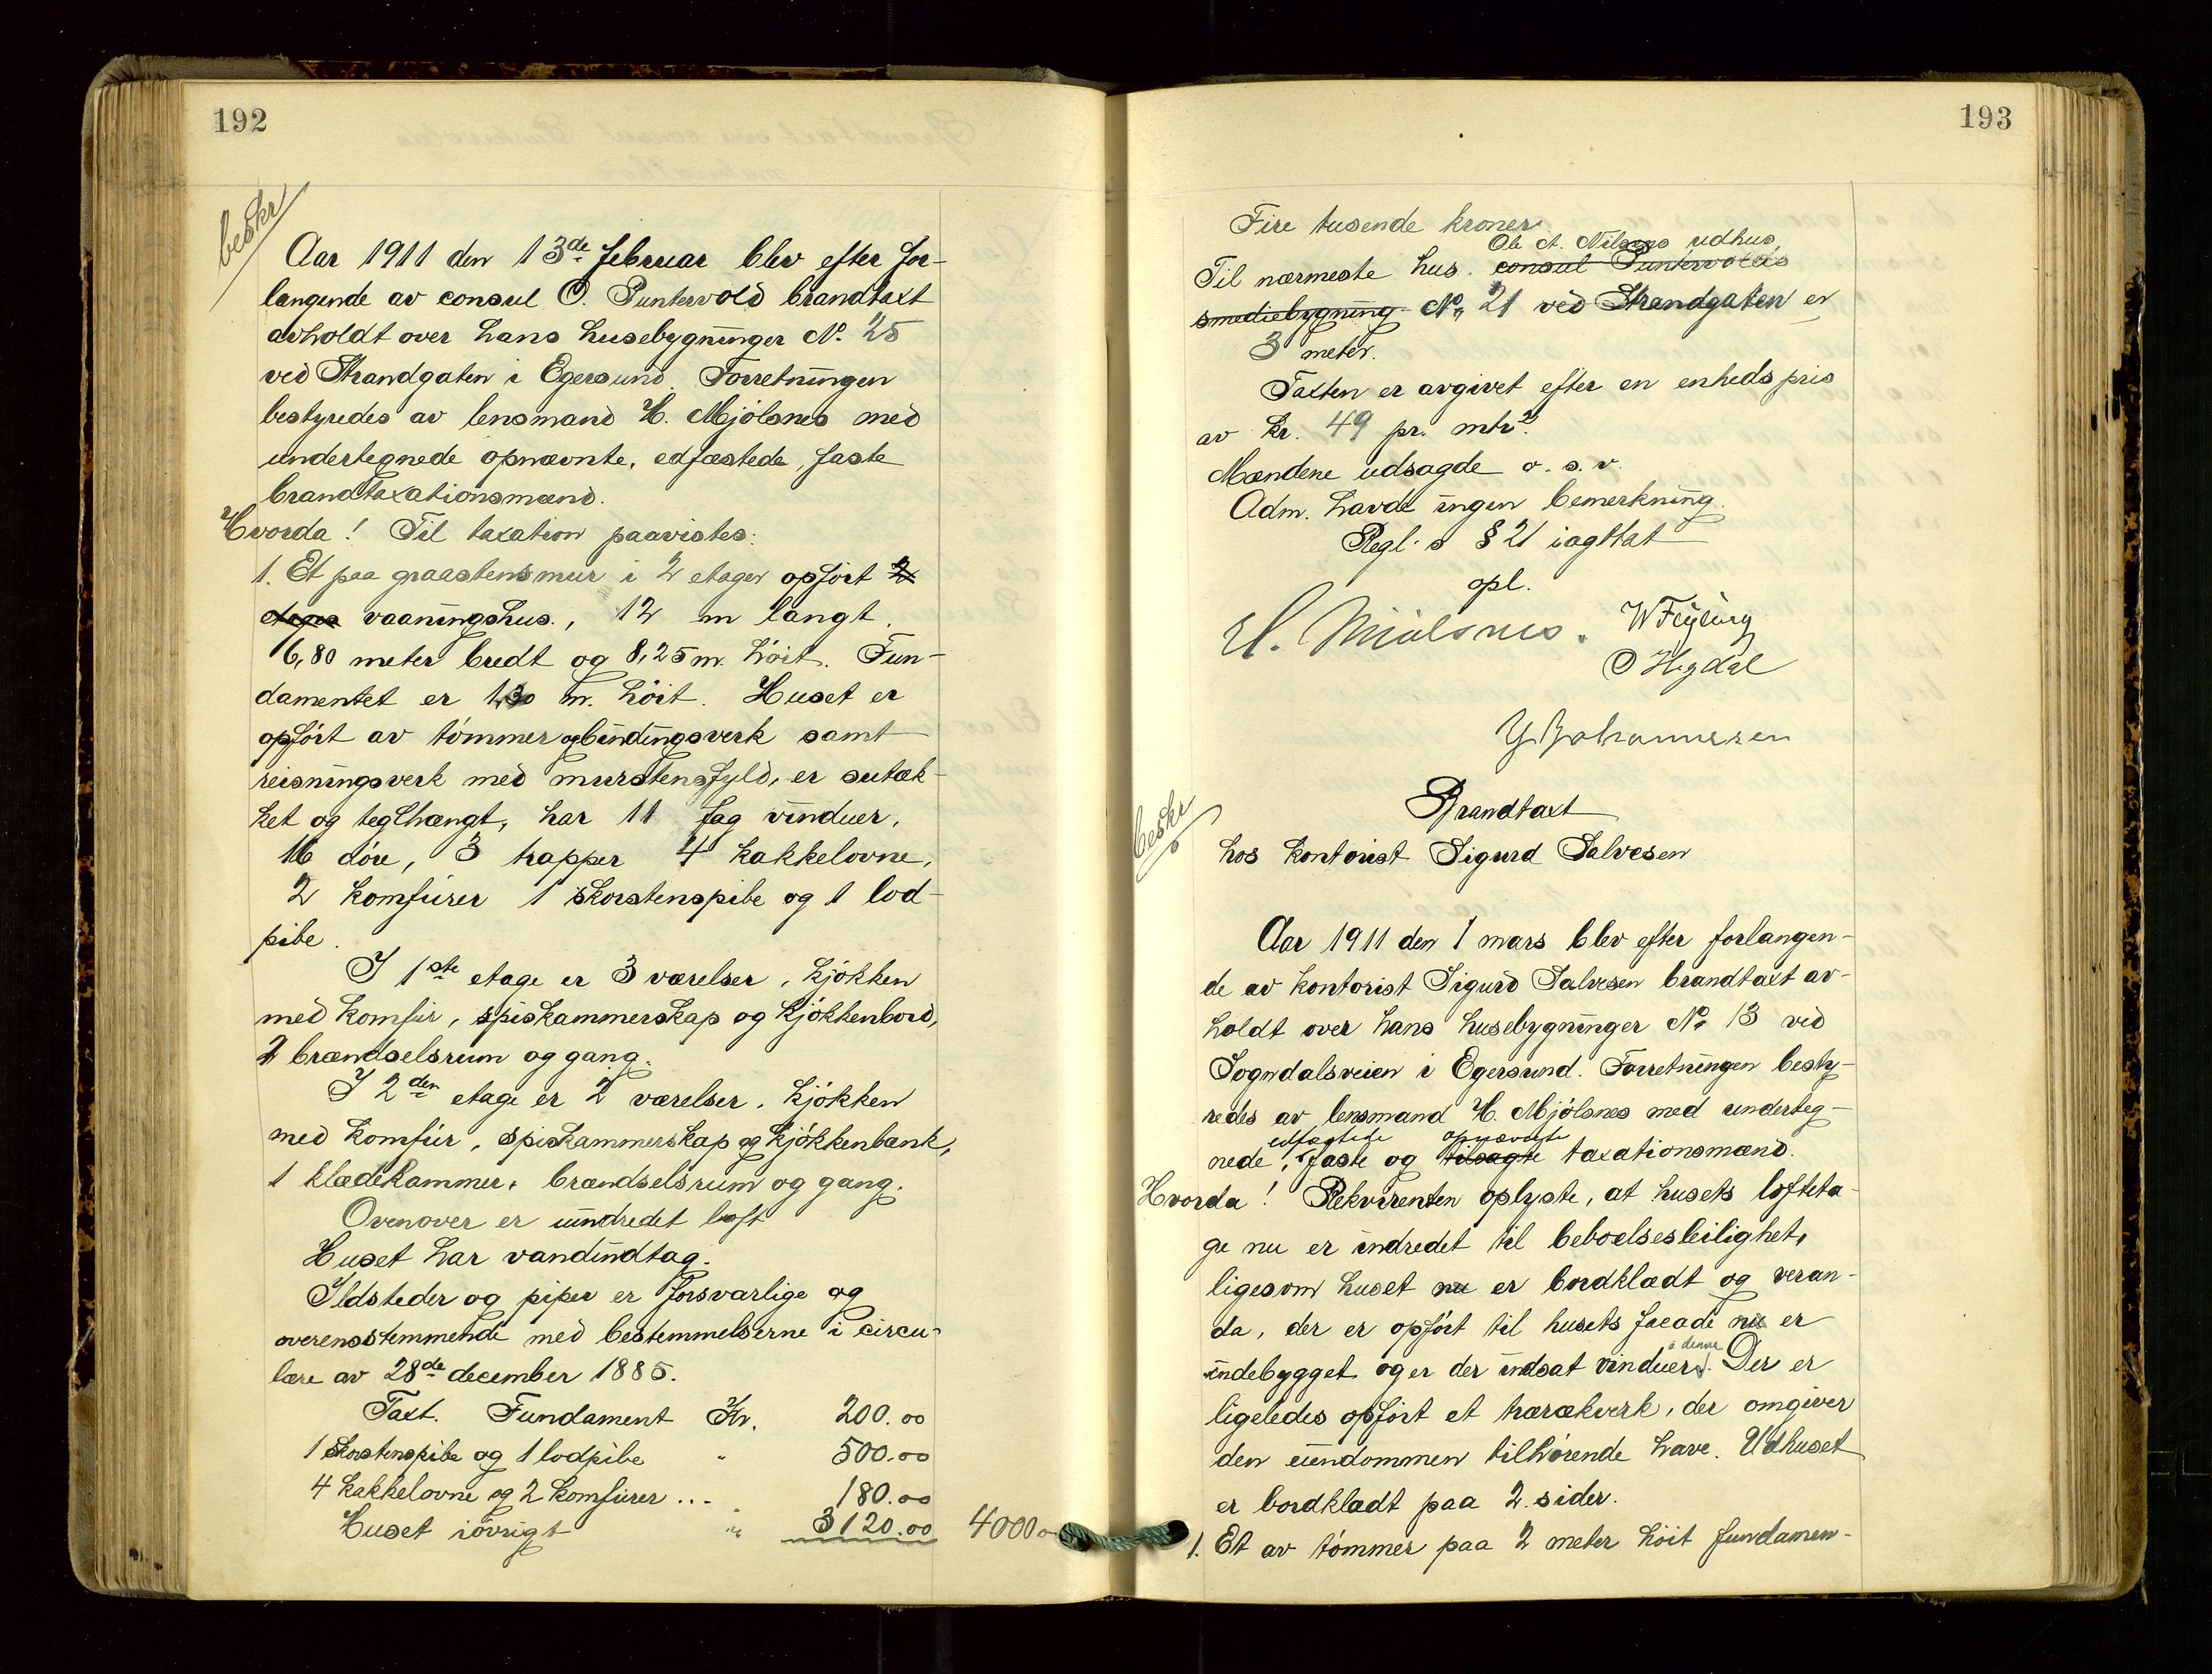 192
beskr
Aar 1911 den 13de februar blev efter for-
langende av consul O. Puntervold brandtaxt
avholdt over hans husebygninger No. 25
ved Strandgaten i Egersund. Forretningen
bestyredes av lensmand H. Mjölsnes med
undertegnede opnævnte, edfæstede faste
brandtaxationsmænd.
Hvorda! Til taxation paavistes:
1. Et paa graastensmur i 2 etager opfört 2
etages vaaningshus, 12 m langt.
6,80 meter bredt og 8,25 m. höit. Fun-
damentet er 1,30 m. höit. Huset er
opfört av tömmer og bindingsverk samt
reisningsverk med murstensfyld, er sutæk-
ket og teglhængt, har 11 fag vinduer,
16 döre, 3 trapper 4 kakkelovne,
2 komfürer 1 skorstenspibe og 1 lod-
pibe.
I 1ste etage er 3 værelser, kjökken
med komfür, spiskammerskap og kjökkenbord,
2 brændselsrum og gang.
I 2den etage er 2 værelser, kjökken
med komfür, spiskammerskap og kjökkenbænk,
1 klædekammer, brændselsrum og gang.
Ovenover er uindredet loft
Huset har vandindtag.
Ildsteder og piper er forsvarlige og
overensstemmende med bestemmelserne i circu-
lære av 28de december 1885.
Taxt. Fundament Kr. 200.00
1 Skorstenspibe og 1 lodpibe " 500.00
4 kakkelovne og 2 komfürer ... 180.00
Huset iövrigt " 3120.00 4000.00
193
Fire tusende kroner.
Ole A. Nilsens udhus,
Til nærmeste hus. consul Puntervolds
smediebygning No. 21 ved Strandgaten er
3 meter.
Taxten er avgivet efter en enhedspris
av kr. 49 pr. mtr2.
Mændene udsagde o. s. v.
Adm. havde ingen bemerkning.
Regl.s § 21 iagttat
opl.
H. Mjölsnes. W Feyling
O Hegdal
G Johannesen
Brandtaxt
beskr
hos kontorist Sigurd Salvesen
Aar 1911 den 1 mars blev efter forlangen-
de av kontorist Sigurd Salvesen brandtaxt av-
holdt over hans husebygninger No. 13 ved
Sogndalsveien i Egersund. Forretningen besty-
redes av lensmand H. Mjölsnes med underteg-
edfæstede opnævnte
nede, faste og tilsagte taxationsmænd.
Hvorda! Rekvirenten oplyste, at husets lofteta-
ge nu er indredet til beboelsesleilighet,
ligesom huset nu er bordklædt og veran-
da, der er opfört til husets facade nu er
i denne
indebygget og er der indsat vinduer. Der er
ligeledes opfört et trærækverk, der omgiver
den eiendommen tilhörende have. Udhuset
er bordklædt paa 2 sider.
1. Et av tömmer paa 2 meter höit fundamen-